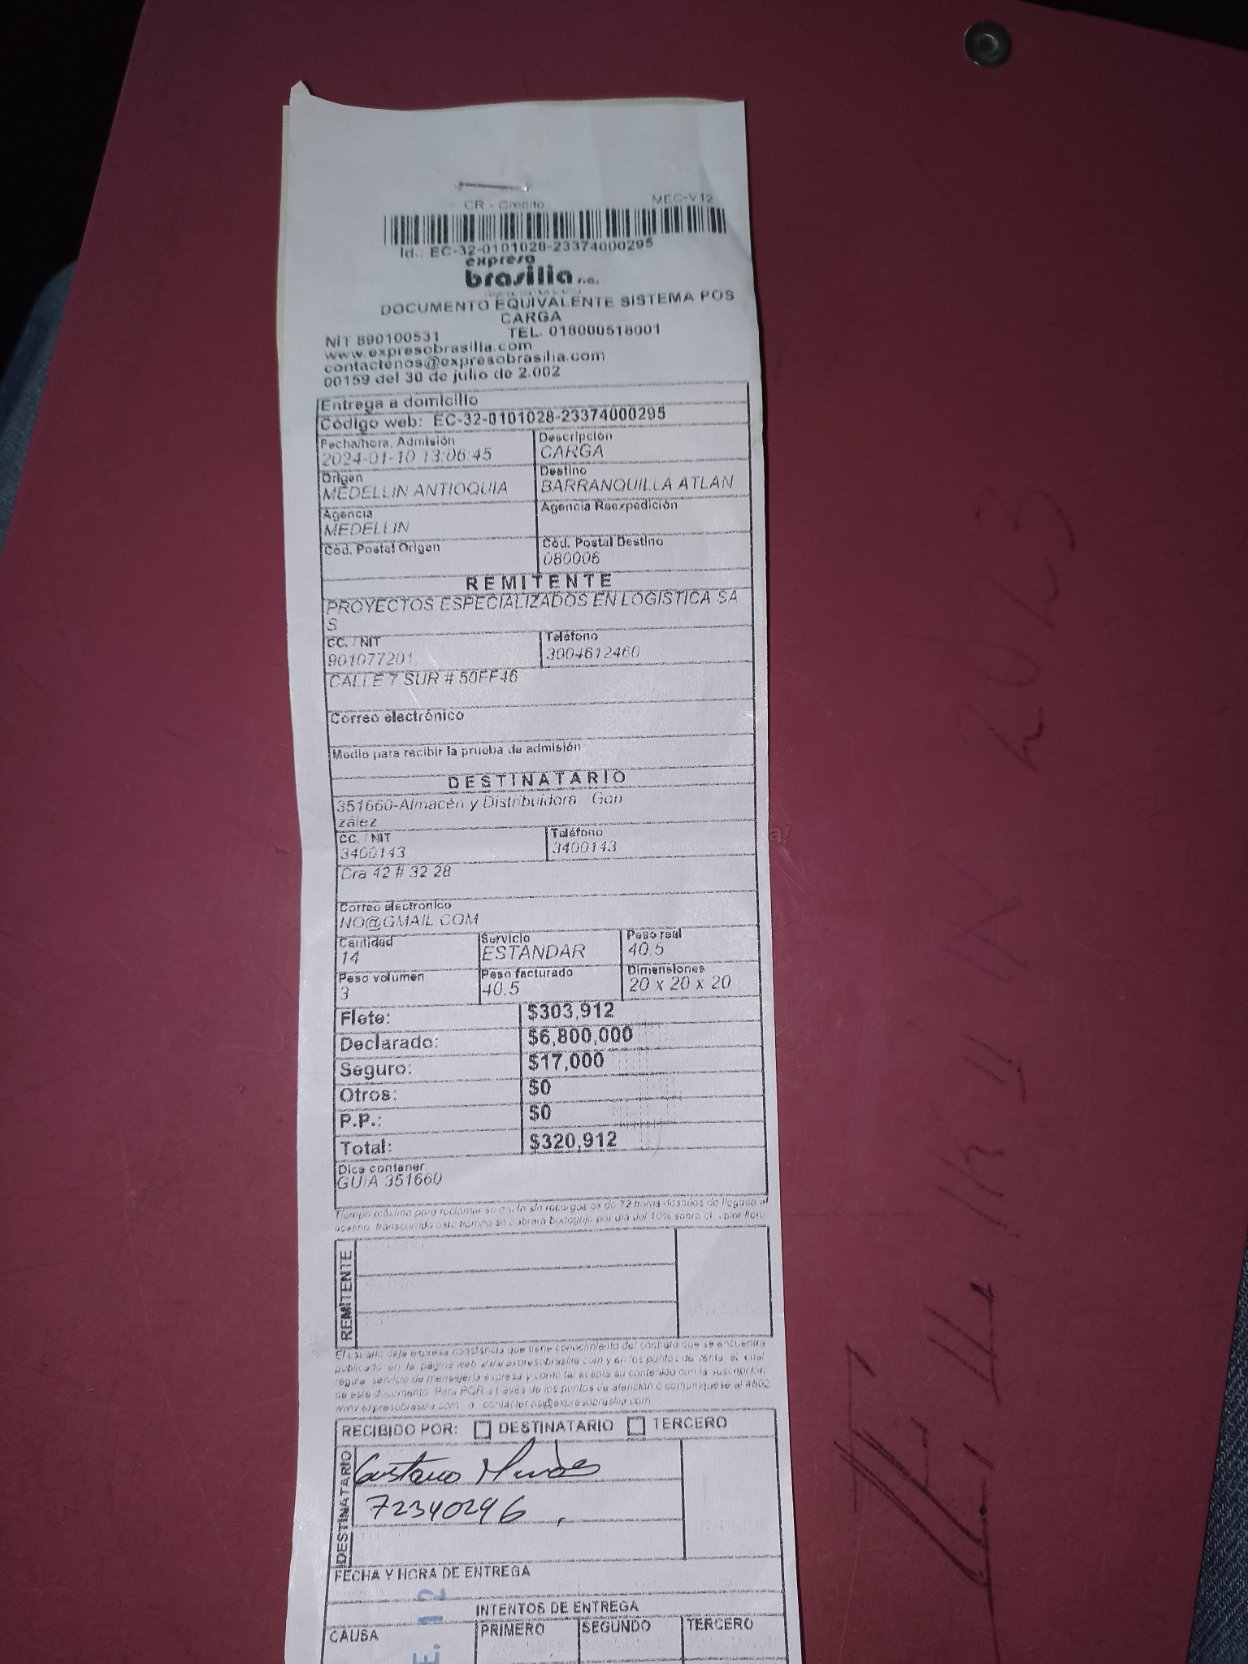 CR - Crédito MEC-V12
Id.: EC-32-0101028-23374000295
expreso
brasilia s.a.
DOCUMENTO EQUIVALENTE SISTEMA POS
CARGA
NIT 890100531 TEL. 018000518001
www.expresobrasilia.com
contactenos@expresobrasilia.com
00159 del 30 de julio de 2.002
Entrega a domicilio
Código web: EC-32-0101028-23374000295
Fecha/hora, Admisión Descripción
2024-01-10 13:06:45 CARGA
Origen Destino
MEDELLIN ANTIOQUIA BARRANQUILLA ATLAN
Agencia Agencia Reexpedición
MEDELLIN
Cód. Postal Origen Cód. Postal Destino
080006
REMITENTE
PROYECTOS ESPECIALIZADOS EN LOGISTICA SA
S
CC. / NIT Teléfono
901077201 3004612460
CALLE 7 SUR # 50FF46
Correo electrónico
Medio para recibir la prueba de admisión
DESTINATARIO
351660-Almacén y Distribuidora Gon
zález
CC. / NIT Teléfono
3400143 3400143
Cra 42 # 32 28
Correo electronico
NO@GMAIL.COM
Cantidad Servicio Peso real
14 ESTANDAR 40.5
Peso volumen Peso facturado Dimensiones
3 40.5 20 x 20 x 20
Flete: $303,912
Declarado: $6,800,000
Seguro: $17,000
Otros: $0
P.P.: $0
Total: $320,912
Dice contener
GUIA 351660
Tiempo máximo para reclamar su envío sin recargos es de 72 horas después de llegado al
destino, transcurrido este tiempo se cobrará bodegaje por día del 10% sobre el valor flete
REMITENTE
El usuario deja expresa constancia que tiene conocimiento del contrato que se encuentra
publicado en la página web www.expresobrasilia.com y en los puntos de venta, el cual
regula servicio de mensajería expresa y como tal acepta su contenido con la suscripción
de este documento. Para PQR a través de los puntos de atención o comuníquese al #502
www.expresobrasilia.com contactenos@expresobrasilia.com
RECIBIDO POR: DESTINATARIO TERCERO
DESTINATARIO
Gustavo
72340296
FECHA Y HORA DE ENTREGA
E. 12
INTENTOS DE ENTREGA
CAUSA PRIMERO SEGUNDO TERCERO